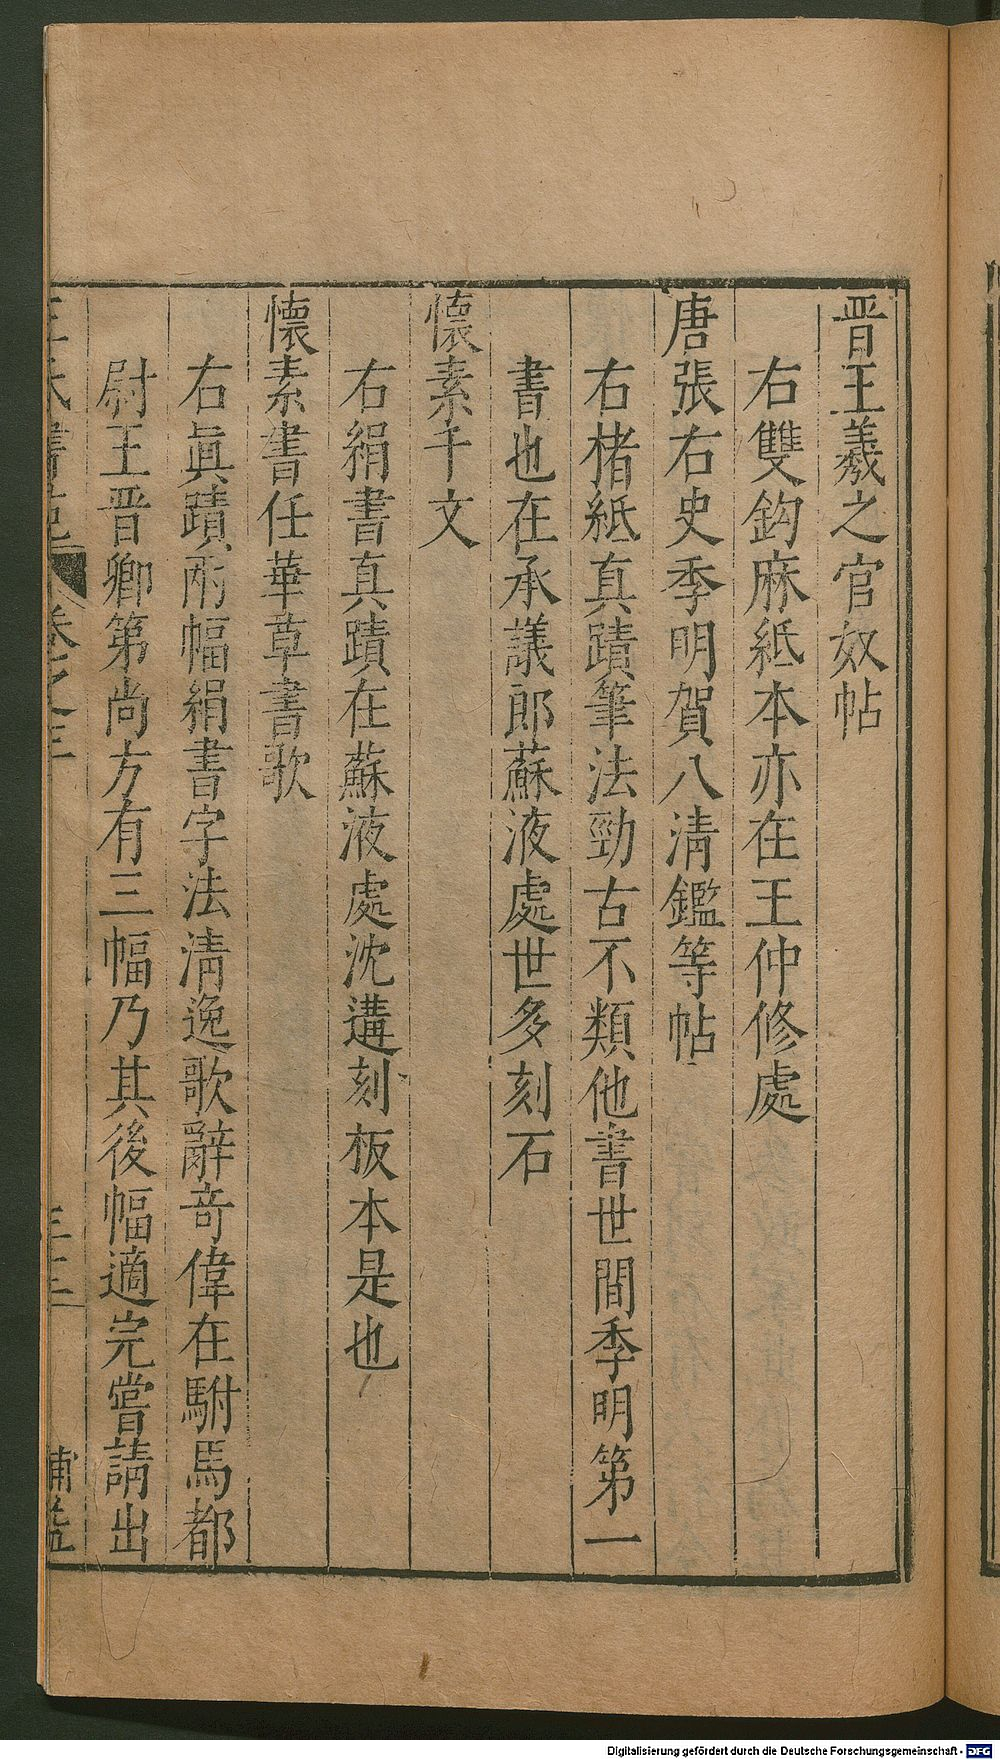 晋王羲之官奴帖
右雙鈎麻紙本亦在王仲修處
唐張右史季明賀八清鑑等帖
右楮紙真蹟筆法勁古不類他書世間季明第一
書也在承議郎蘇液處世多刻石
懷素千文
右絹書真蹟在蘇液處沈遘刻板本是也
懷素書任華草書歌
右眞蹟兩幅絹書字法清逸歌辭竒偉在駙馬都
尉王晋卿第尚方有三幅乃其後幅適完嘗請出
王氏書苑 卷之三
Digitalisierung gefördert durch die Deutsche Forschungsgemeinschaft - DFG